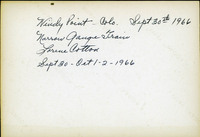 Windy Point - Colo. Sept 30th 1966
Narrow Gauge Train
Lorine Cotton
Sept 30 - Oct 1-2-1966